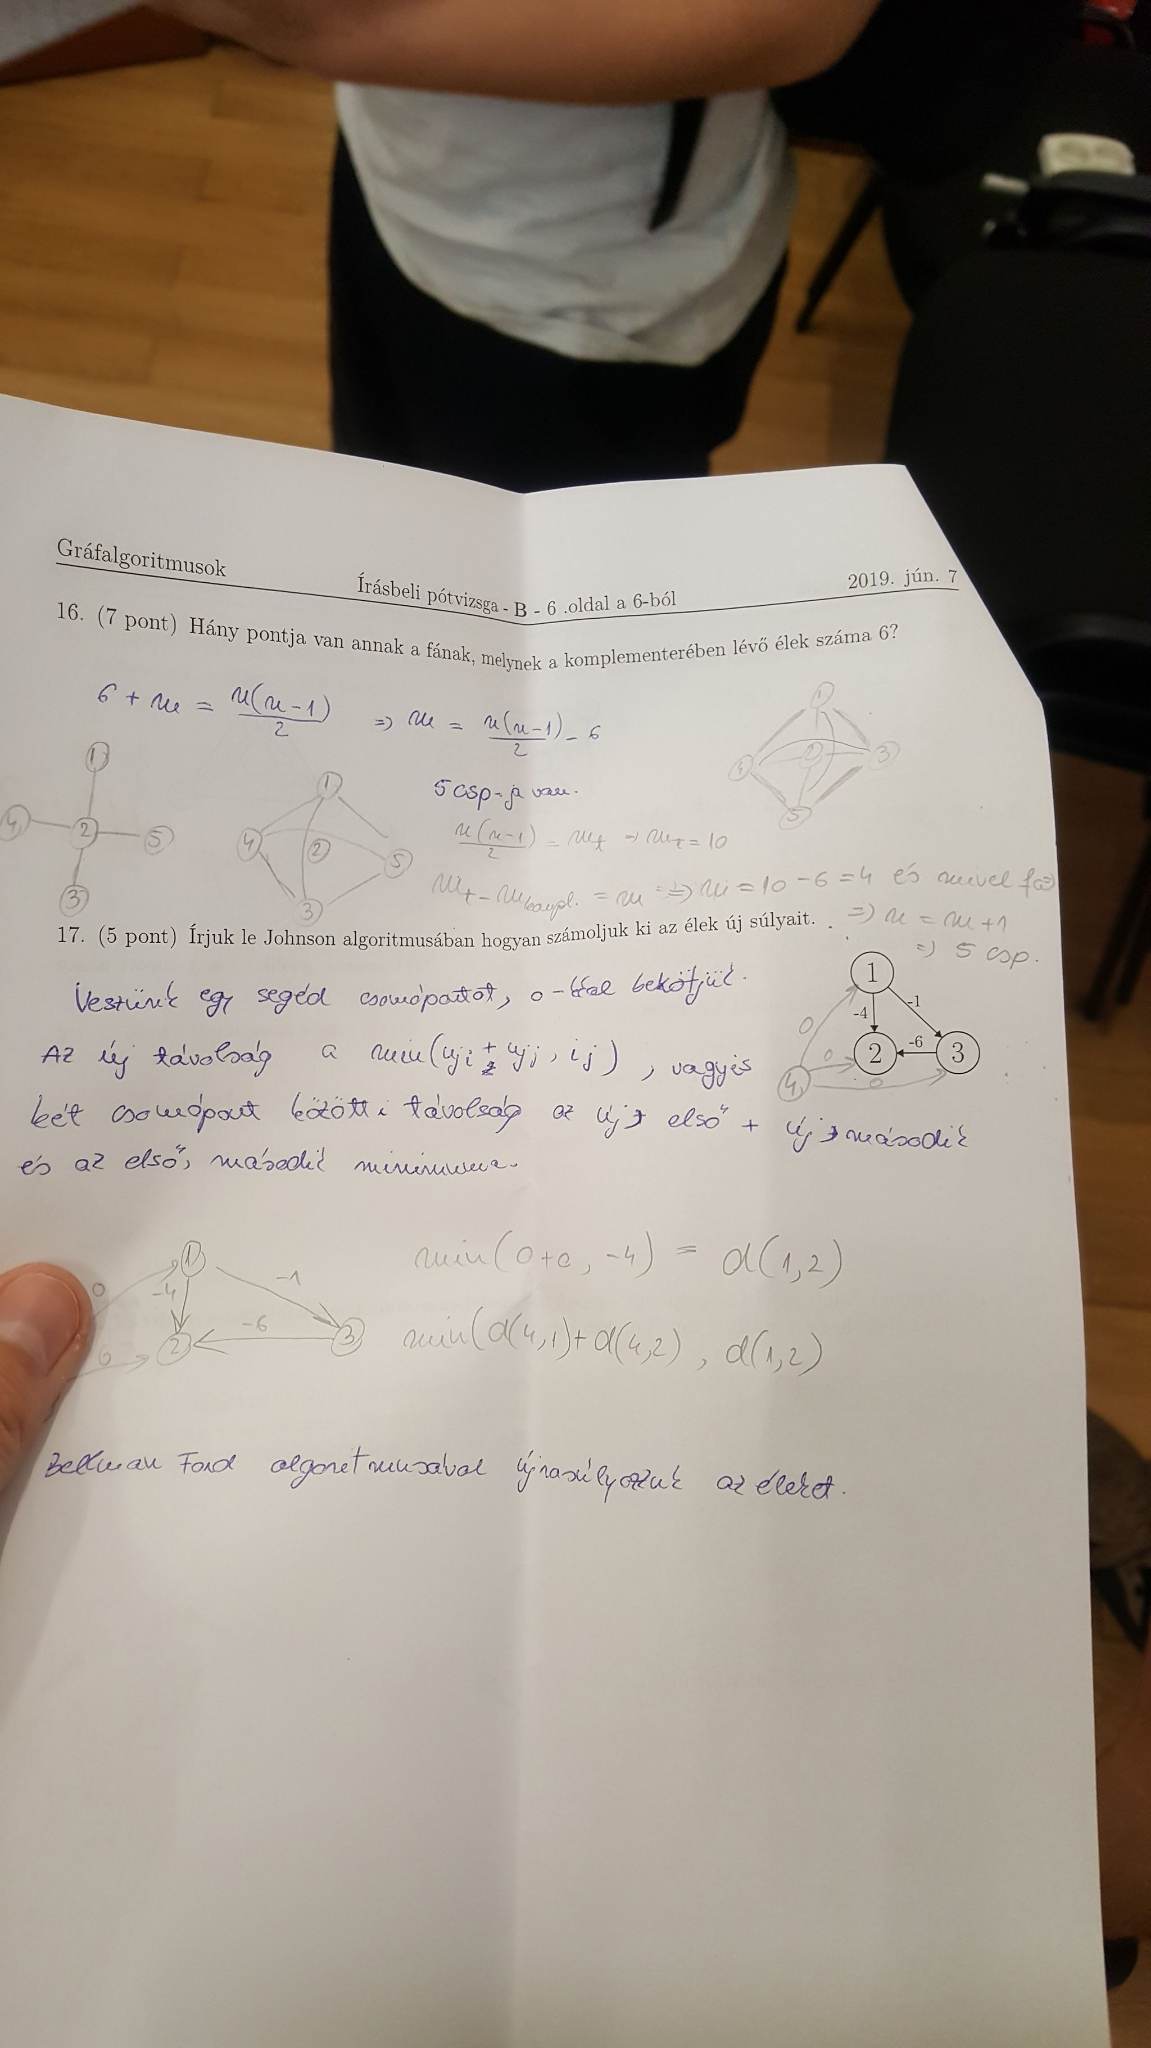 Gráfalgoritmusok
Írásbeli pótvizsga - B - 6 .oldal a 6-ból
2019. jún. 7
16. (7 pont) Hány pontja van annak a fának, melynek a komplementerében lévő élek száma 6?
6 + m = n(n-1)/2 => m = n(n-1)/2 - 6
1
4 2 5
3
1
4 2 5
3
1
4 2 3
5
5 csp-ja van.
n(n-1)/2 = mt => mt = 10
mt - mkompl. = m => m = 10 - 6 = 4 és mivel fa
=> n = m+1
=> 5 csp.
17. (5 pont) Írjuk le Johnson algoritmusában hogyan számoljuk ki az élek új súlyait.
Veszünk egy segéd csomópontot, 0-kkal bekötjük.
1
-4 -1
0
2 -6 3
0
4 0
Az új távolság a min(uji + ujj, ij), vagyis
két csomópont közötti távolság az új első + új második
és az első, második minimuma.
1
0 -4 -1
2 -6 3
0
min(0+0, -4) = d(1,2)
min(d(4,1)+d(4,2), d(1,2)
Bellman Ford algoretmusával újrasúlyozzuk az éleket.